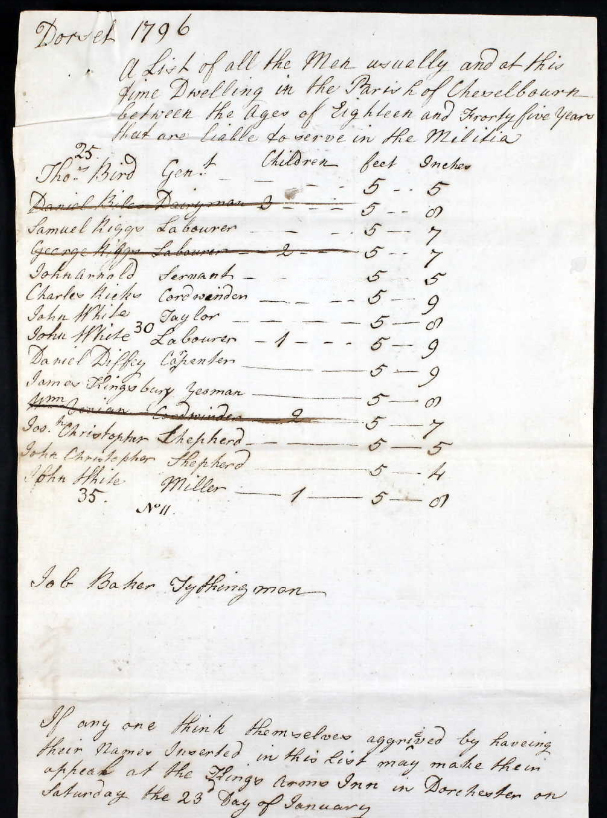 Dorset 1796
A List of all the Men usually and at this
time Dwelling in the Parish of Chevelbourn
between the Ages of Eighteen and Frorty five Years
that are liable to serve in the Militia
25 Children feet Inches
Thos. Bird Gent 5 5
Daniel Dairyman 3 5 8
Samuel Riggs Labourer 5 7
George Riggs Labourer 2 5 7
John Arnold Servant 5 5
Charles Hicks Cordwinder 5 9
John White Taylor 5 8
John White 30 Labourer 1 5 9
Daniel Diffey Capenter 5 9
James Kingsbury Yeoman 5 8
Wm Cordwinder 2 5 7
Josh Christopher Shepherd 5 5
John Christopher Shepherd 5 4
John White Miller 1 5 8
35. No 11.
Job Baker Tythingman
If any one think themselves aggrived by haveing
their Names Inserted in this List may make their
appeal at the Kings Arms Inn in Dorchester on
Saturday the 23d Day of January